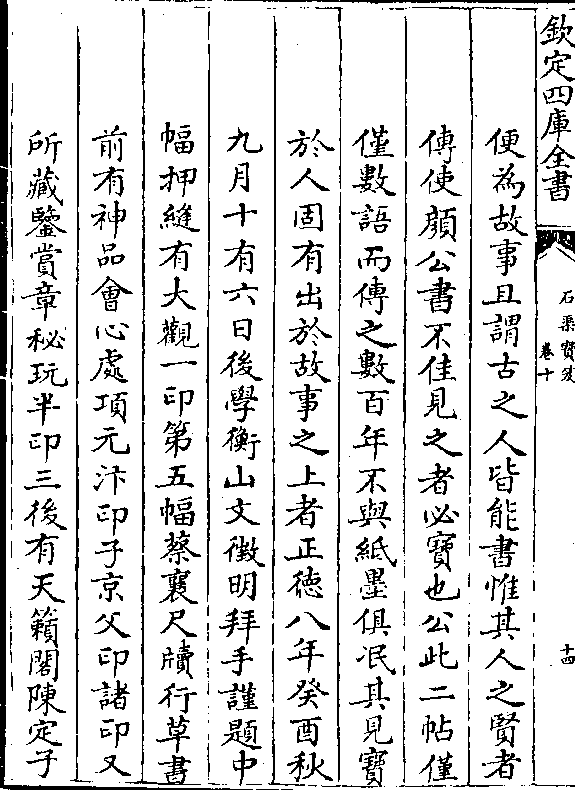 欽定四庫全書
石渠寶笈
卷十
十四
便為故事且謂古之人皆能書惟其人之賢者
傳使顔公書不佳見之者必寶也公此二帖僅
僅數語而傳之數百年不與紙墨俱泯其見寶
於人固有出於故事之上者正徳八年癸酉秋
九月十有六日後學衡山文徴明拜手謹題中
幅押縫有大觀一印第五幅蔡襄尺牘行草書
前有神品會心處項元汴印子京父印諸印又
所藏鑒賞章秘玩半印三後有天籟閣陳定子